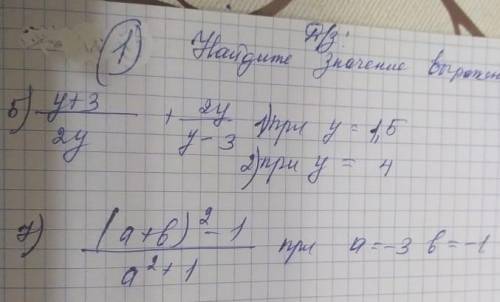 ДЗ:
① Найдите значение выражен
5) (y+3)/(2y) + (2y)/(y-3) 1) при y = 1,5
2) при y = 4
7) ((a+b)² - 1)/(a² + 1) при a = -3 b = -1